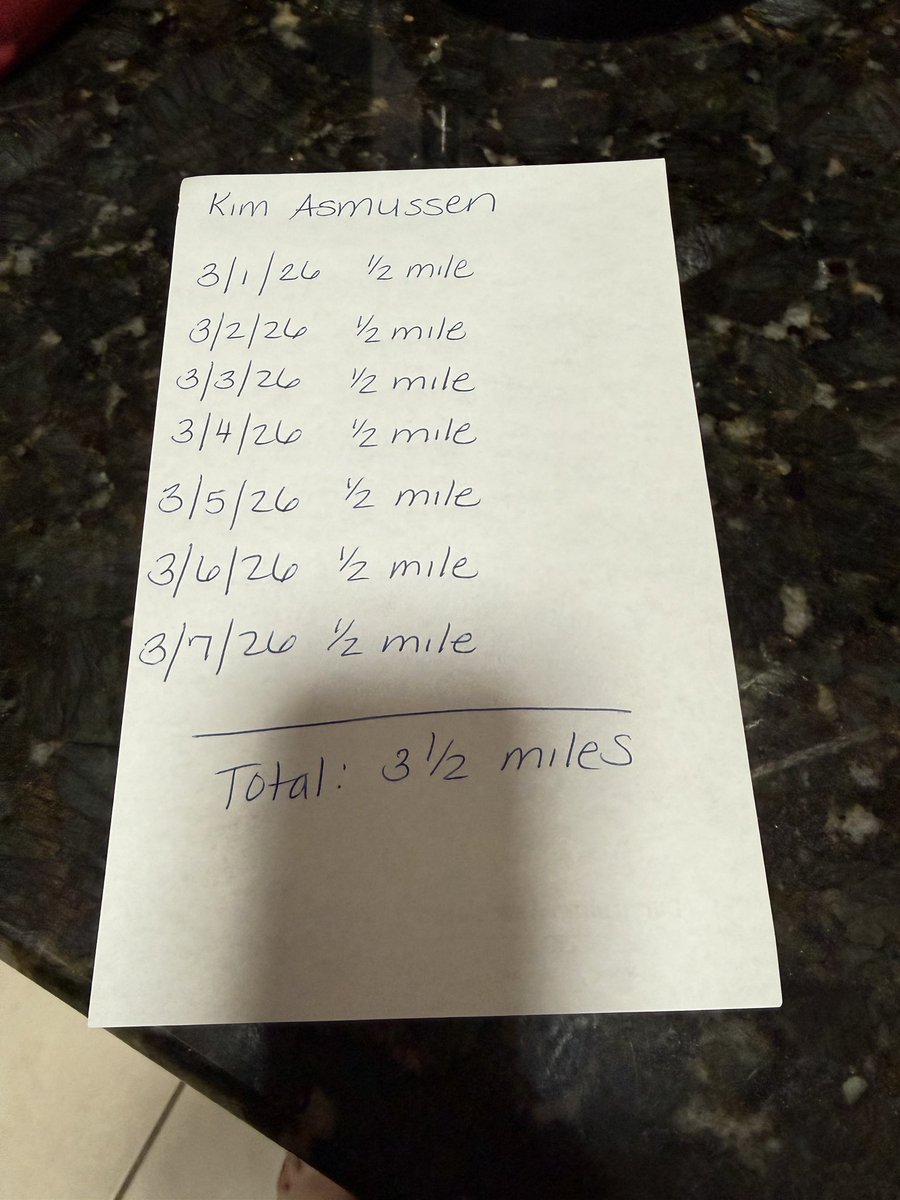 Kim Asmussen
3/1/26 1/2 mile
3/2/26 1/2 mile
3/3/26 1/2 mile
3/4/26 1/2 mile
3/5/26 1/2 mile
3/6/26 1/2 mile
3/7/26 1/2 mile
Total: 3 1/2 miles